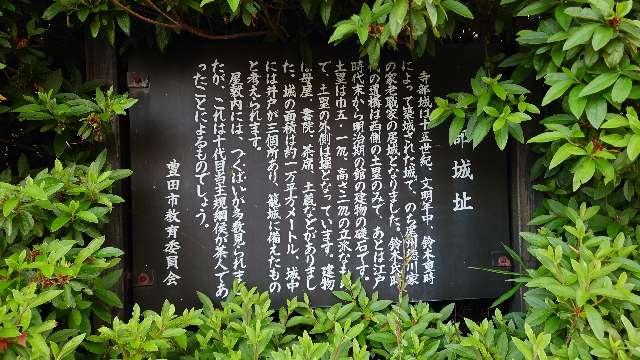 部城址
寺部城は十五世紀、文明年中、鈴木重時
によって築城された城で、のち尾州徳川家
の家老職家の居城となりました。鈴木氏時
の遺構は西側の土塁のみで、あとは江戸
時代末から明治期の館の建物の礎石です。
土塁は巾五・一㍍、高さ三㍍の立派なも
で、土塁の外側は堀となっています。建物
は母屋、書院、茶席、土蔵などがありまし
た。城の面積は約一万平方メートル、城中
には井戸が三個所あり、籠城に備えたもの
と考えられます。
屋敷内には、つくばいが多数見られ
たが、これは十代目当主規綱侯が茶人であ
ったことによるものでしょう。
豊田市教育委員会